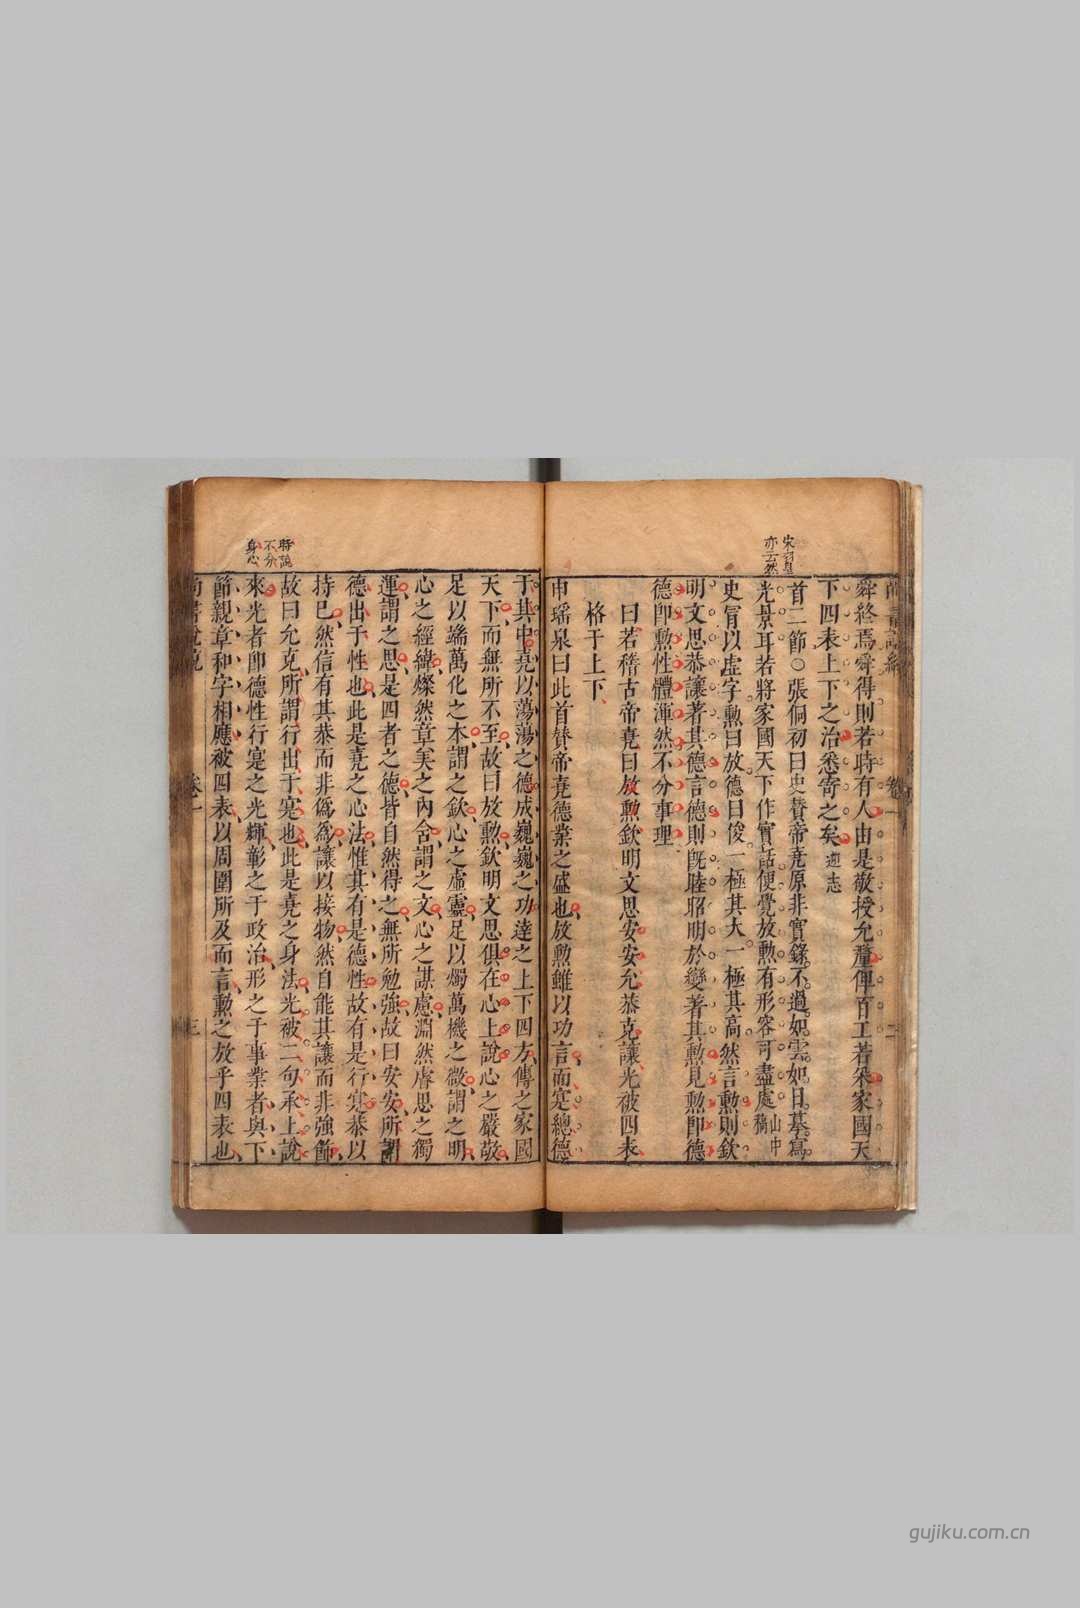 宋羽皇
亦云然
舜終焉舜得則若時有人由是敬授允釐俾百工若采家國天
下四表上下之治悉寄之矣迎志
首二節○張侗初曰史贊帝堯原非實錄不過如雲如日摹寫
光景耳若將家國天下作實話便覺放勲有形容可盡處山中稿
史官以虛字勲曰放德曰俊一極其大一極其高然言勲則欽
明文思恭讓著其德言德則旣睦昭明於變著其勲見勲卽德
德卽勲性體渾然不分事理
曰若稽古帝堯曰放勲欽明文思安安允恭克讓光被四表
格于上下
申瑤泉曰此首贊帝堯德業之盛也放勲雖以功言而寔總德
時說
不分
身心
于其中堯以蕩蕩之德成巍巍之功達之上下四方傳之家國
天下而無所不至故曰放勲欽明文思俱在心上說心之嚴敬
足以端萬化之本謂之欽心之虛靈足以燭萬機之微謂之明
心之經緯燦然章美之內含謂之文心之謀慮淵然睿思之獨
運謂之思是四者之德皆自然得之無所勉強故曰安安所謂
德出于性也此是堯之心法惟其有是德性故有是行寔恭以
持已然信有其恭而非僞爲讓以接物然自能其讓而非強飾
故曰允克所謂行出于寔也此是堯之身法光被二句承上說
來光者卽德性行寔之光輝彰之于政治形之于事業者與下
節親章和字相應被四表以周圍所及而言勲之放乎四表也
卷一
三
gujiku.com.cn